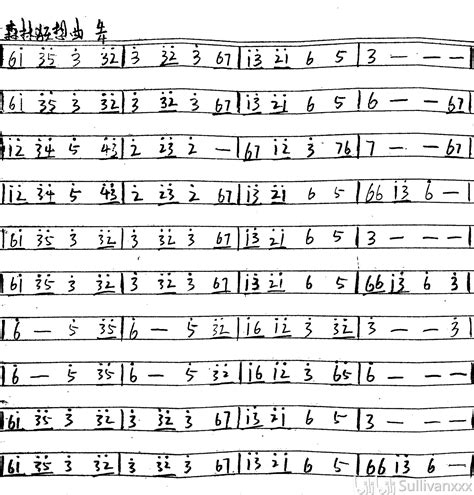 森林狂想曲 4/4
|6i 3̇5̇ 3̇ 3̇2̇|3̇ 3̇2̇ 3̇ 67|i3̇ 2̇i 6 5|3 — — —|
|6i 3̇5̇ 3̇ 3̇2̇|3̇ 3̇2̇ 3̇ 67|i3̇ 2̇i 6 5|6 — — 67|
|i2̇ 3̇4̇ 5̇ 4̇3̇|2̇ 2̇3̇ 2̇ —|67 i2̇ 3̇ 76|7 — — 67|
|i2̇ 3̇4̇ 5̇ 4̇3̇|2̇ 2̇3̇ 2̇ 67|i3̇ 2̇i 6 5|66 i3̇ 6 —|
|6i 3̇5̇ 3̇ 3̇2̇|3̇ 3̇2̇ 3̇ 67|i3̇ 2̇i 6 5|3 — — —|
|6i 3̇5̇ 3̇ 3̇2̇|3̇ 3̇2̇ 3̇ 67|i3̇ 2̇i 6 5|66 i3̇ 6 3̇|
|6̇ — 5̇ 3̇5̇|6̇ — 5̇ 3̇2̇|i6 i2̇ 3̇ 3̇2̇|3̇ — — 3̇|
|6̇ — 5̇ 3̇5̇|6̇ — 5̇ 3̇2̇|i6 i2̇ 3̇ 65|6 — — —|
|6i 3̇5̇ 3̇ 3̇2̇|3̇ 3̇2̇ 3̇ 67|i3̇ 2̇i 6 5|3 — — —|
|6i 3̇5̇ 3̇ 3̇2̇|3̇ 3̇2̇ 3̇ 67|i3̇ 2̇i 6 5|66 i3̇ 6 —|
Sullivanxxx